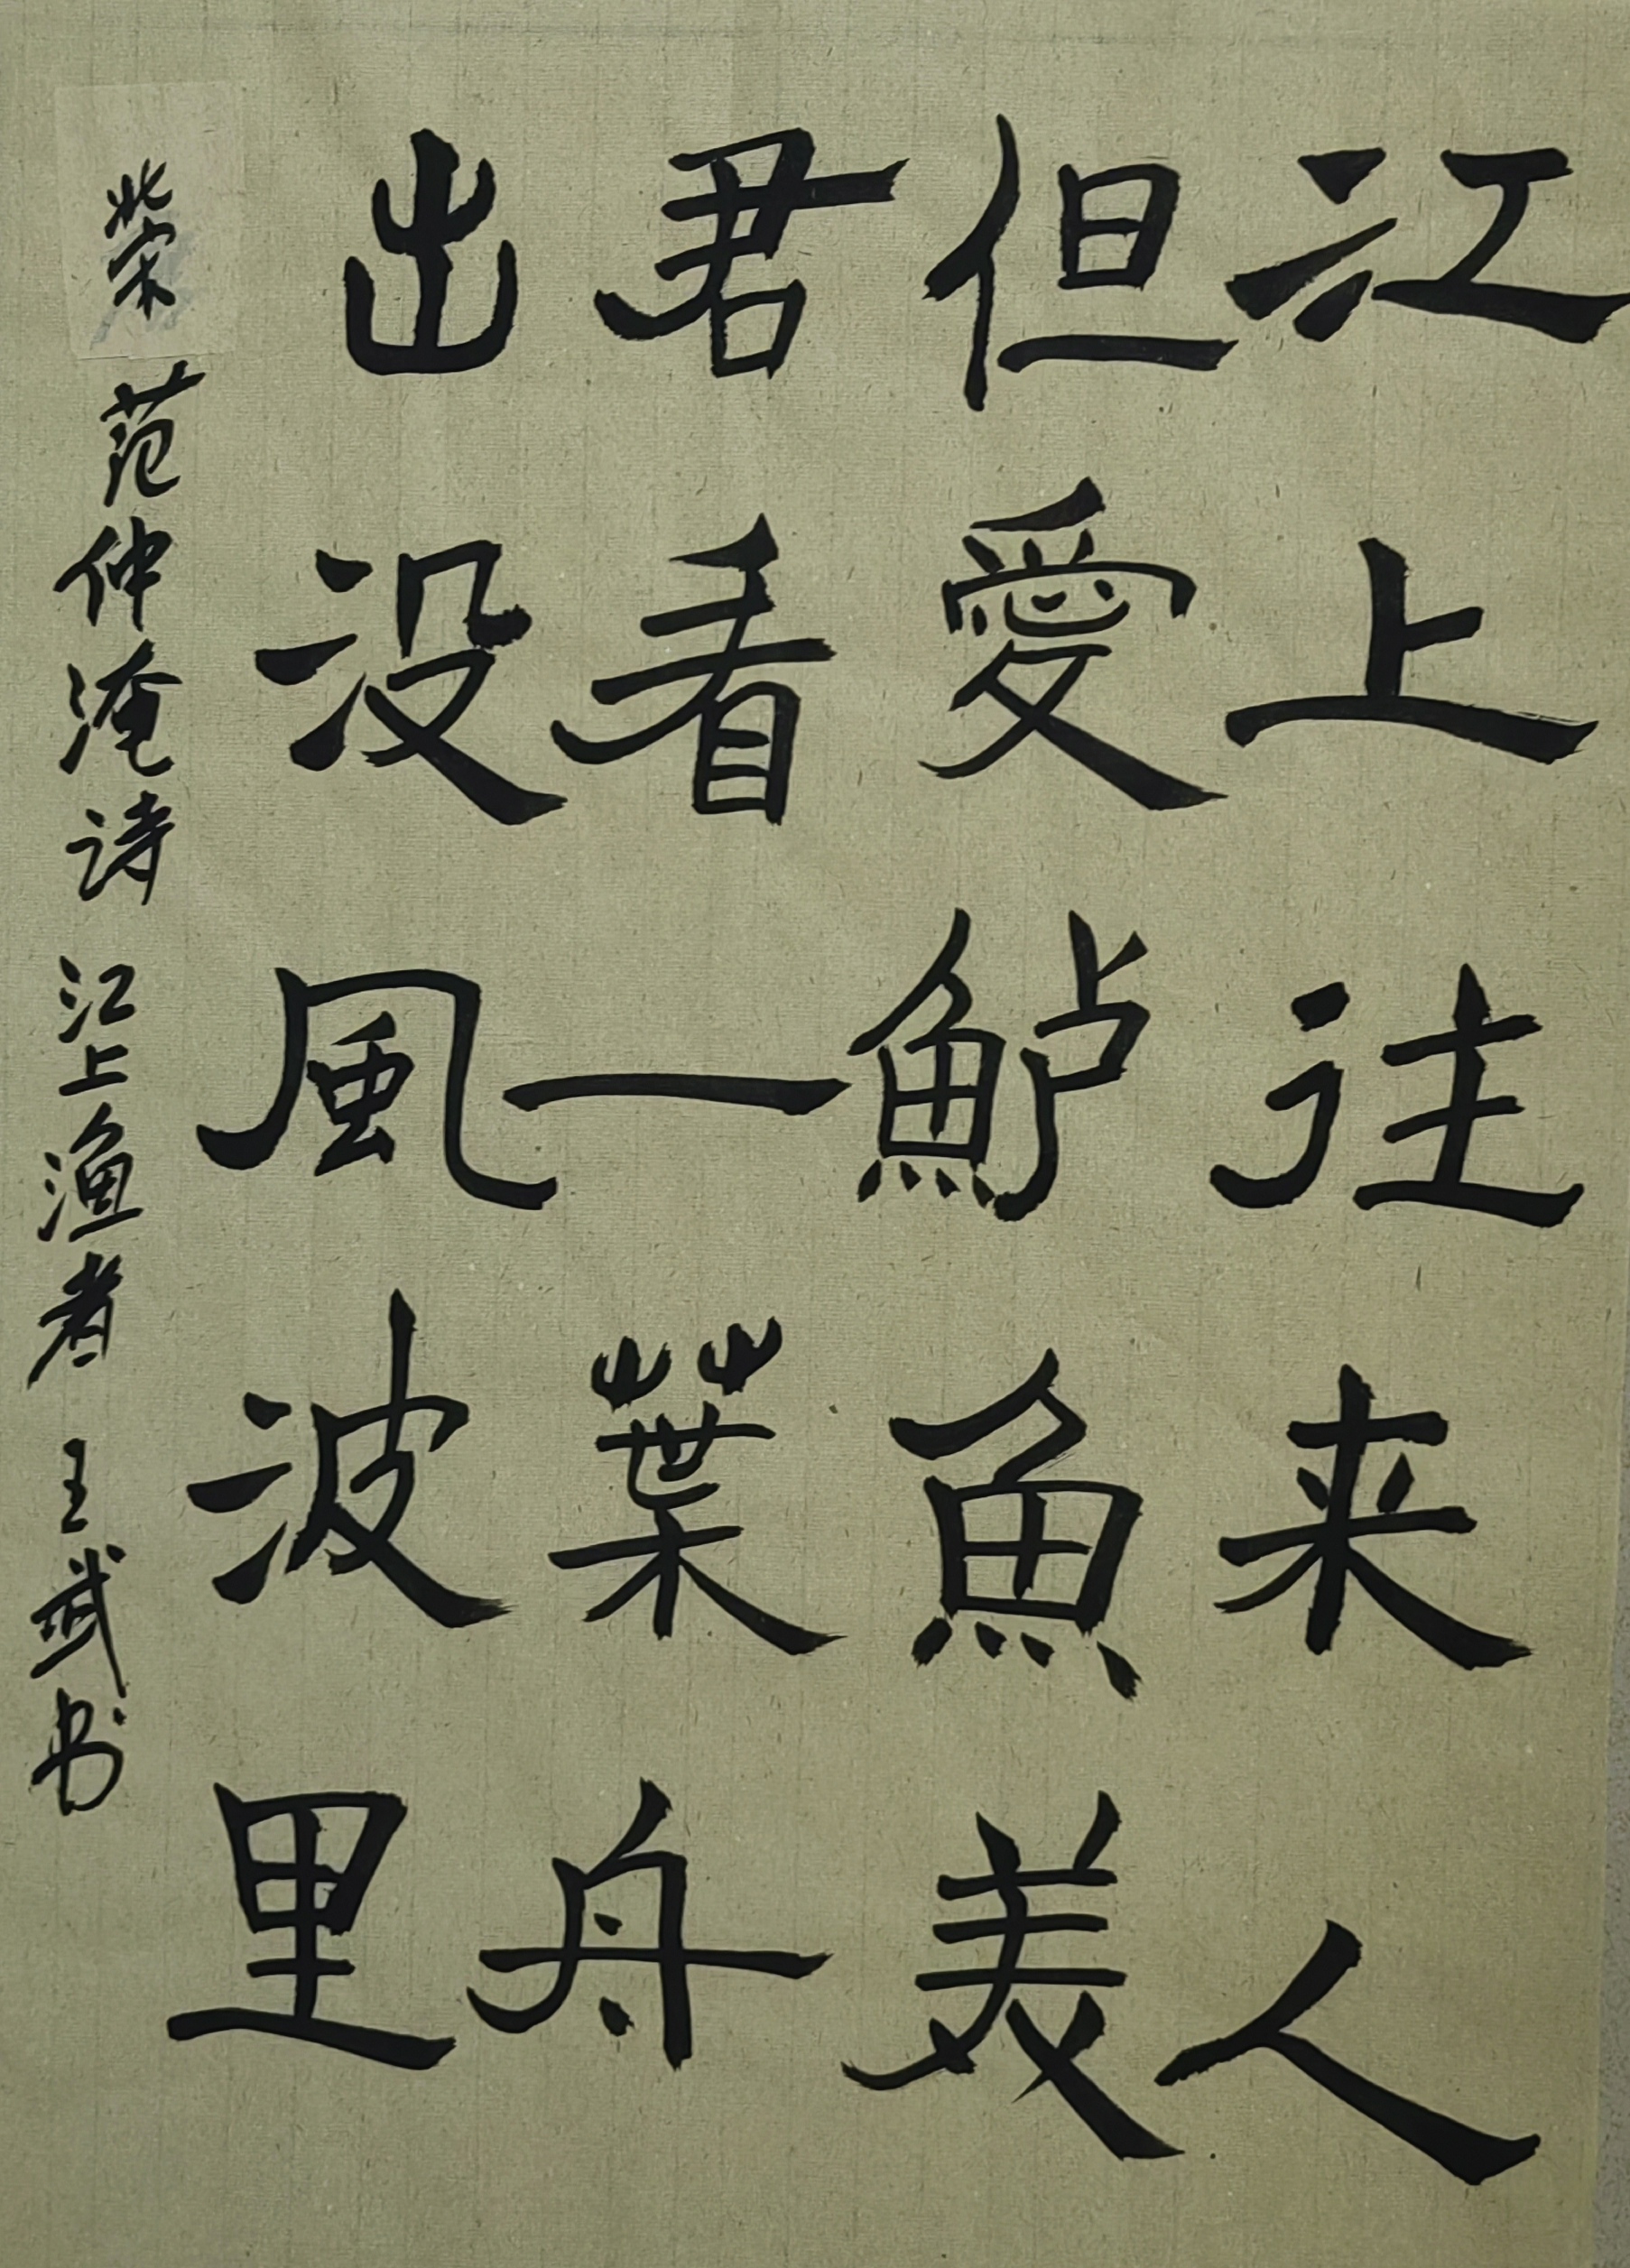 江上往来人
但愛鲈魚美
君看一葉舟
出没風波里
北宋 范仲淹诗 江上渔者 王斌书